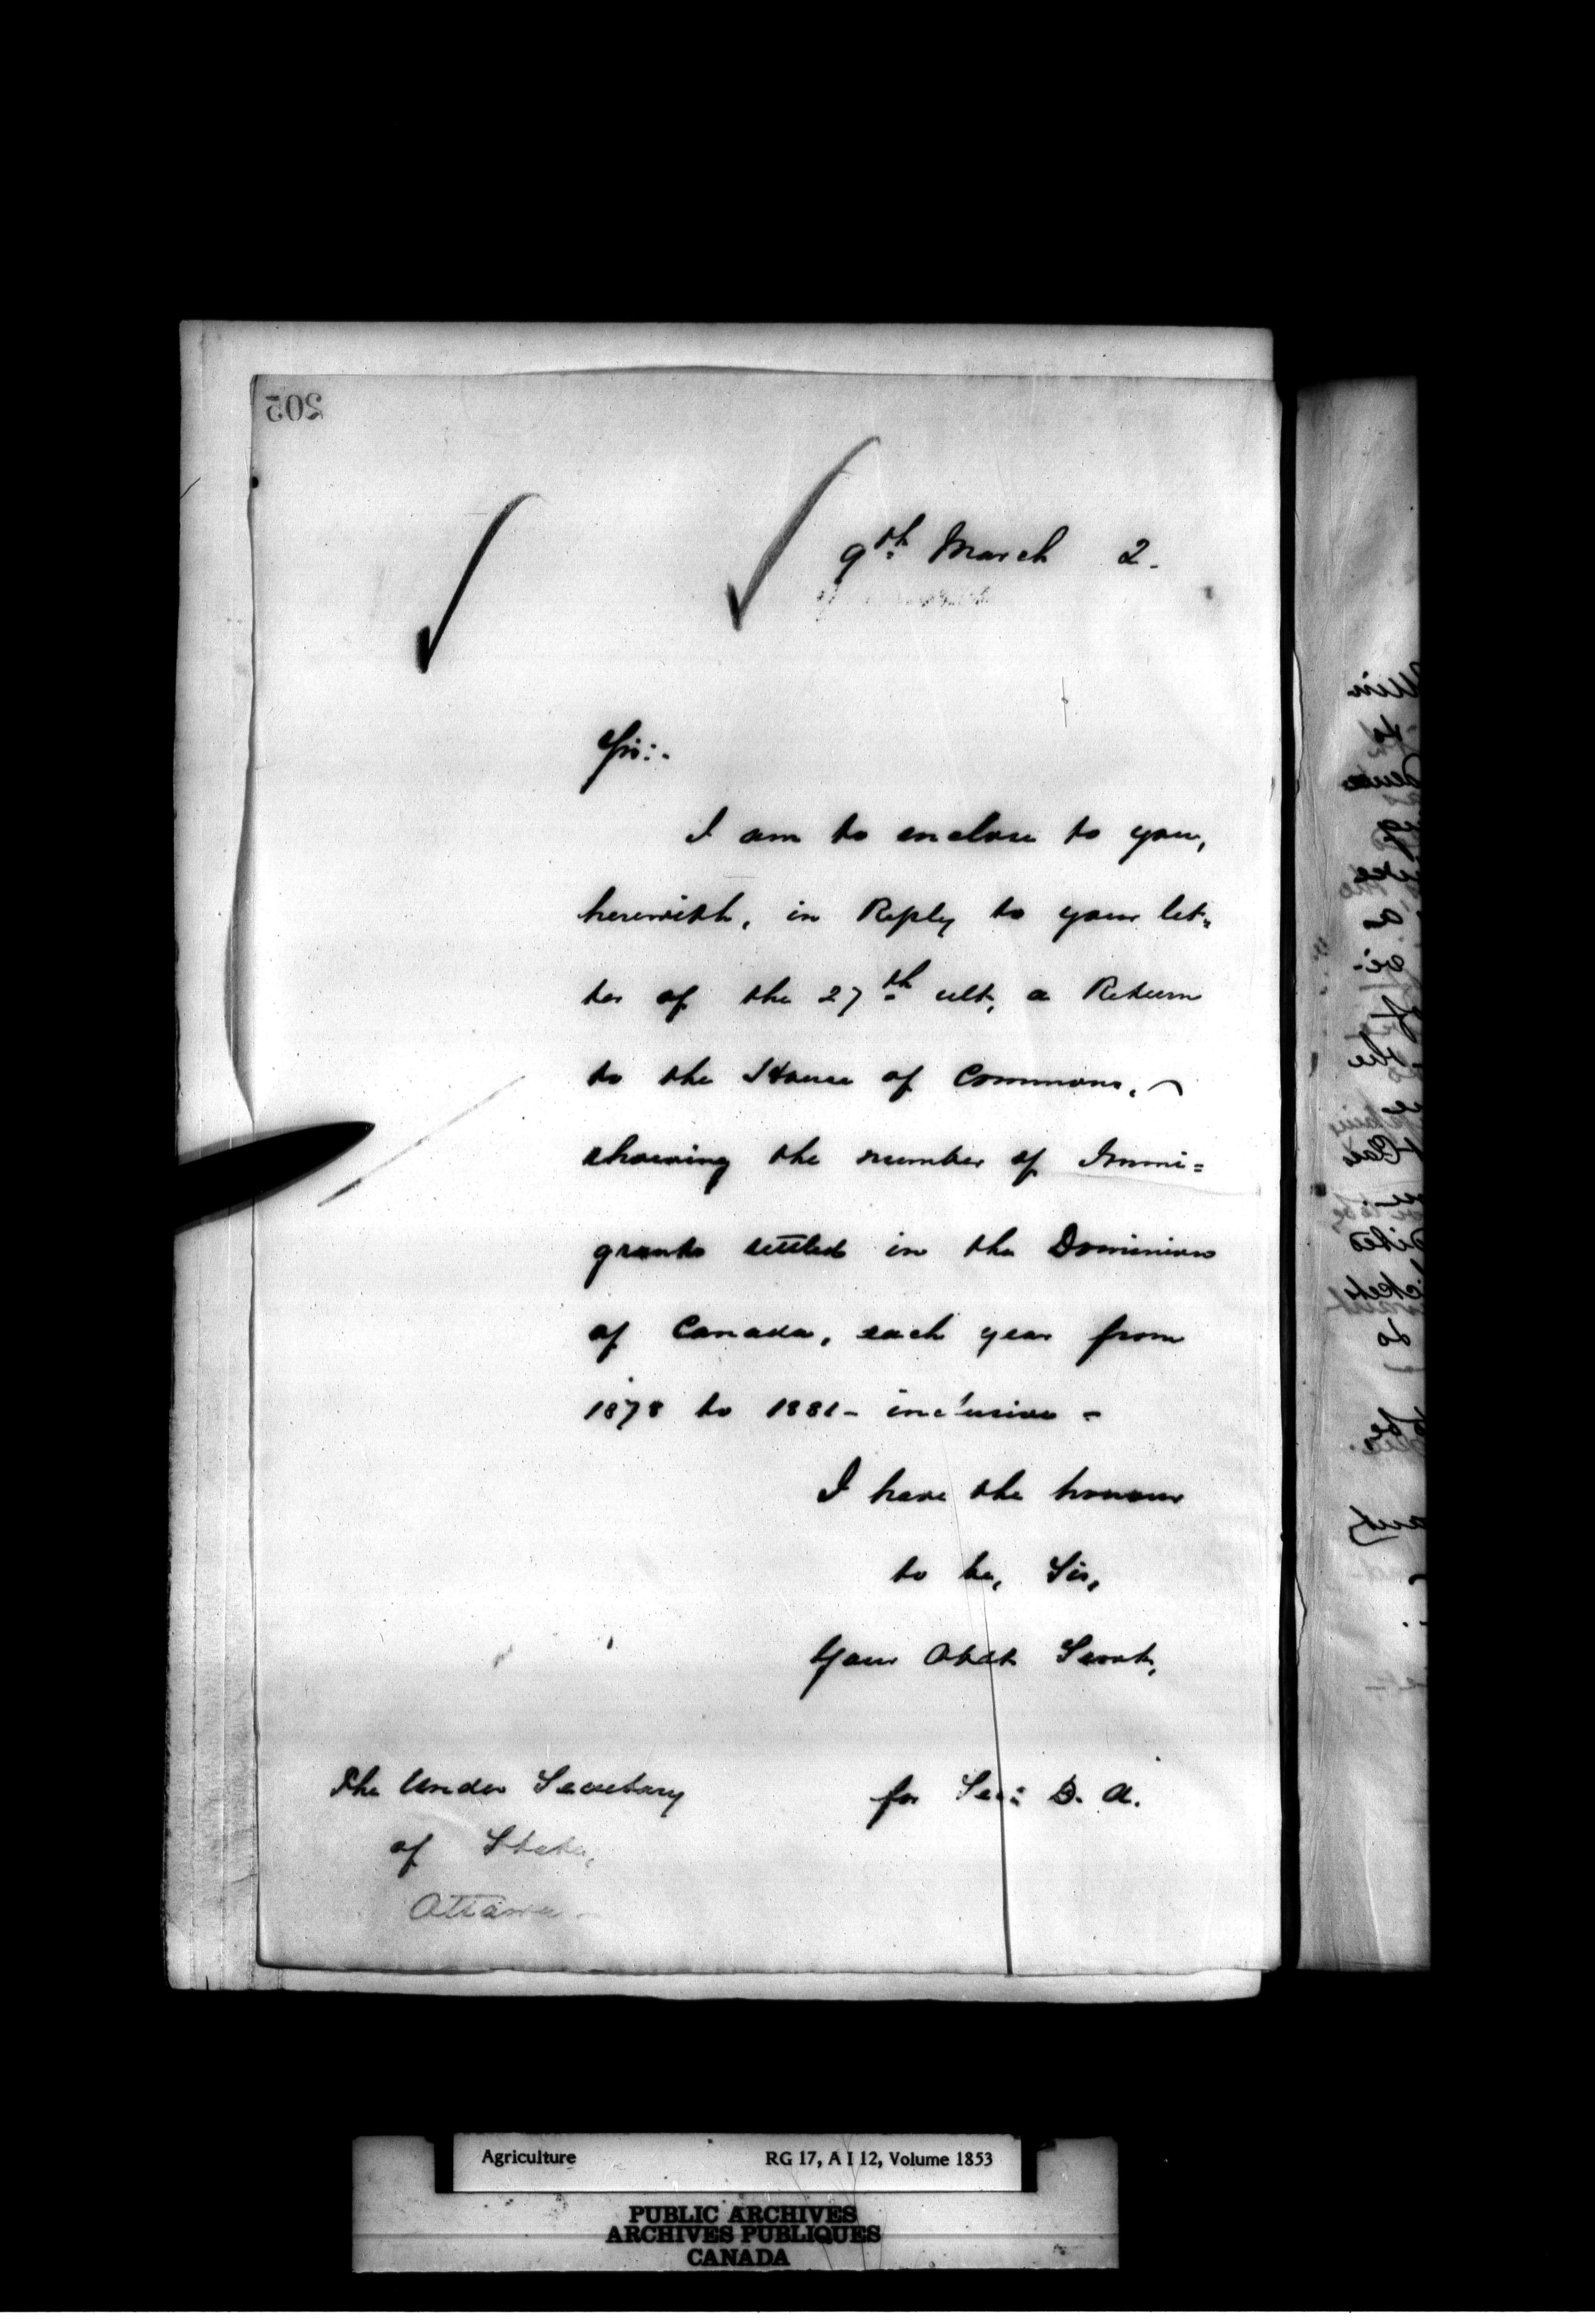 205
9th March 2.
Sir:-
I am to enclose to you,
herewith, in Reply to your let=
ter of the 27th ult, a Return
to the House of Commons,
showing the number of Immi=
grants settled in the Dominion
of Canada, each year from
1878 to 1881- inclusive -
I have the honour
to be, Sir,
Your Obdt Servt,
for Sec: D. A.
The Under Secretary
of State,
Ottawa -
Agriculture RG 17, A I 12, Volume 1853
PUBLIC ARCHIVES
ARCHIVES PUBLIQUES
CANADA